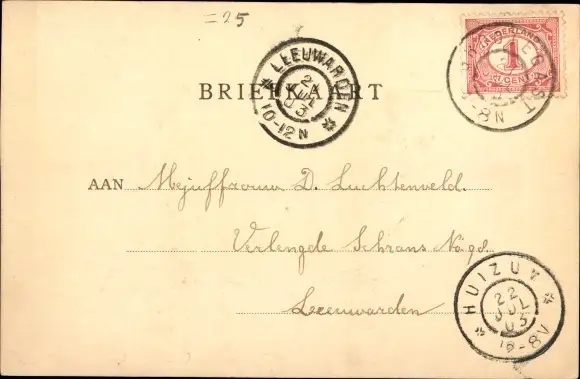 =25
NEDERLAND
1
CENT
LEEUWARDEN
2
JUL
03
10-12N
BRIEFKAART
8N
AAN Mejuffrouw D. Luchtenveld.
Verlengde Schrans No.
Leeuwarden
HUIZUM
22
JUL
03
-8V